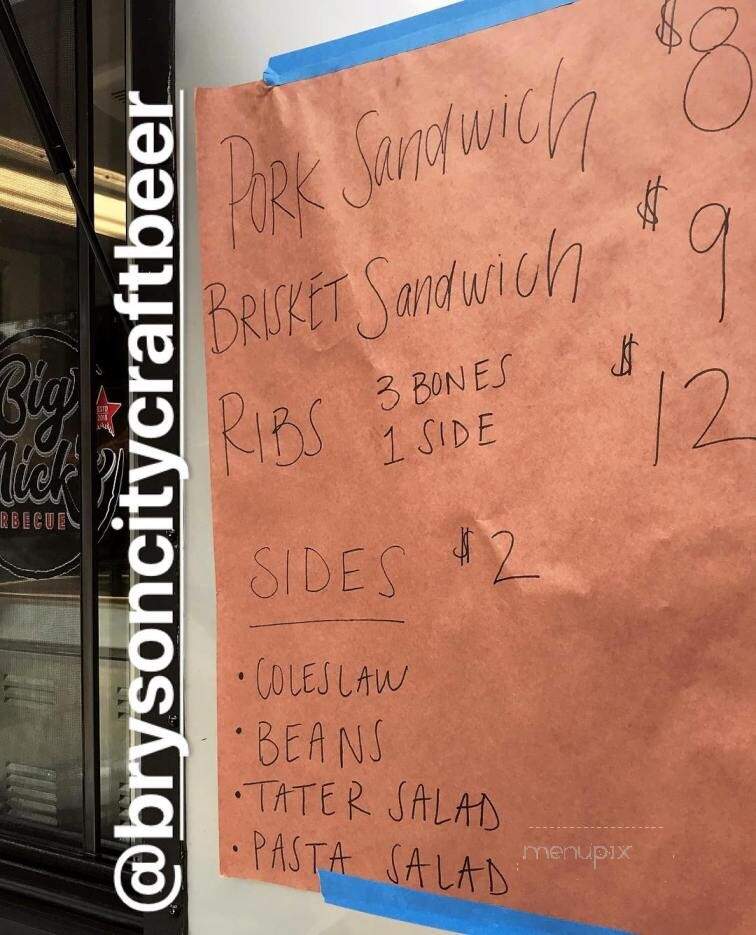 @brysoncitycraftbeer
Big
Nick
RBECUE
PORK Sandwich $8
BRISKET Sandwich $9
RIBS 3 BONES $12
1 SIDE
SIDES $2
• COLESLAW
• BEANS
• TATER SALAD
• PASTA SALAD
menupix